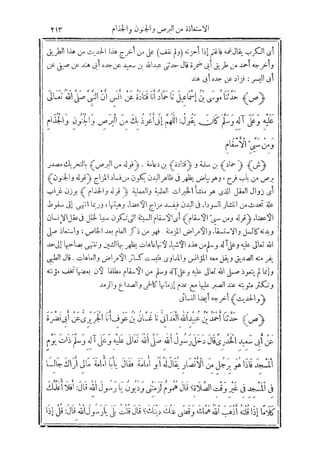 الاستعاذة من البرص والجنون والجذام ٢١٣
أى الكرب يقال غمه فاغتم إذا أحزنه (ولم نقف) على من أخرج هذا الحديث من هذا الطريق
وأخرجه أحمد من طريق أبى ضمرة قال حدثنى عبدالله بن سعيد عن جده أبى هند عن صيفى عن
أبى اليسر: فزاد عن جده أبى هند
(ص) حَدَّثَنَا مُوسَى بْنُ إِسْمَاعِيلَ نَا حَمَّادٌ أَنَا قَتَادَةُ عَنْ أَنَسٍ أَنَّ النَّبِيَّ صَلَّى اللهُ تَعَالَى
عَلَيْهِ وَعَلَى آلِهِ وَسَلَّمَ كَانَ يَقُولُ: اللَّهُمَّ إِنِّي أَعُوذُ بِكَ مِنَ الْبَرَصِ وَالْجُنُونِ وَالْجُذَامِ
وَمِنْ سَيِّئِ الْأَسْقَامِ
(ش) (حماد) بن سلمة و (قتادة) بن دعامة. (قوله من البرص) بالتحريك مصدر
برص من باب فرح، وهو بياض يظهر فى ظاهر البدن يكون من فساد المزاج (قوله والجنون)
أى زوال العقل الذى هو منشأ الخيرات العلمية والعملية (قوله والجذام) بوزن غراب
علة تحدث من انتشار السوداء فى البدن فيفسد مزاج الاعضاء، وهيئاتها، وربما انتهى إلى سقوط
الاعضاء، (قوله ومن سيئ الاسقام) أى الاسقام السيئة التى تكون سببا لخلل فى عقل الإنسان
وبدنه كالسل والاستسقاء، والامراض المزمنة. فهو من ذكر العام بعد الخاص: واستعاذ صلى
الله تعالى عليه وعلى آله وسلم من هذه الاشياء لانها عاهات يظهر بها الشين وتنتهى بصاحبها إلى حد
يفر منه الصديق ويقل معه المؤانس والمداوى فليست كسائر الامراض والعاهات. قال الطيبى
وإنما لم يتعوذ صلى الله تعالى عليه وعلى آله وسلم من الاسقام مطلقا لان بعضها تخف مؤنته
وتكثر مثوبته عند الصبر عليها مع عدم إزمانها كالحمى والصداع والرمد
(والحديث) أخرجه أيضا النسائى
(ص) حَدَّثَنَا أَحْمَدُ بْنُ عُبَيْدِ اللهِ الْغُدَانِيُّ نَا غَسَّانُ بْنُ عَوْفٍ أَنَا الْجُرَيْرِيُّ عَنْ أَبِي نَضْرَةَ
عَنْ أَبِي سَعِيدٍ الْخُدْرِيِّ قَالَ دَخَلَ رَسُولُ اللهِ صَلَّى اللهُ تَعَالَى عَلَيْهِ وَعَلَى آلِهِ وَسَلَّمَ ذَاتَ يَوْمٍ
الْمَسْجِدَ فَإِذَا هُوَ بِرَجُلٍ مِنَ الْأَنْصَارِ يُقَالُ لَهُ أَبُو أُمَامَةَ فَقَالَ يَا أَبَا أُمَامَةَ مَالِي أَرَاكَ جَالِسًا
فِي الْمَسْجِدِ فِي غَيْرِ وَقْتِ الصَّلَاةِ؟ قَالَ هُمُومٌ لَزِمَتْنِي وَدُيُونٌ يَا رَسُولَ اللهِ قَالَ: أَفَلَا أُعَلِّمُكَ
كَلَامًا إِذَا قُلْتَهُ أَذْهَبَ اللهُ هَمَّكَ وَقَضَى عَنْكَ دَيْنَكَ؟ قَالَ قُلْتُ بَلَى يَا رَسُولَ اللهِ قَالَ: قُلْ إِذَا